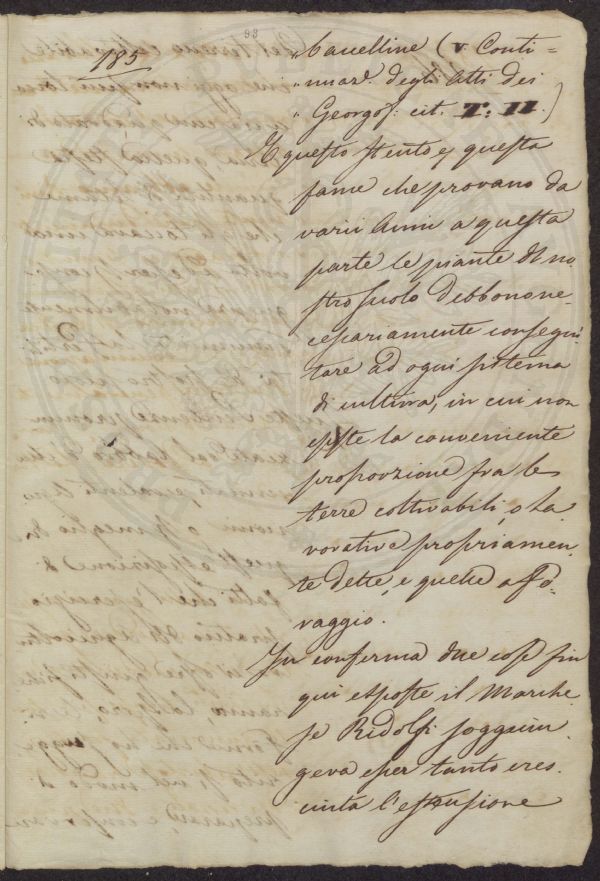 93
185
" Caselline (v. Conti=
" nuaz.e degli Atti dei
" Georgof: cit. T: II.)
E questo stento, e questa
fame che provano da
varii Anni a questa
parte le piante del no=
stro suolo debbono ne=
cessariamente consegui=
tare ad ogni sistema
di cultura, in cui non
esiste la conveniente
proporzione fra le
terre coltivabili, o la=
vorative propriamen=
te dette, e quelle a fo=
raggio.
In conferma due cose fin
qui esposte il Marche
se Ridolfi soggiun
geva esser tanto cres.
ciuta l'estensione